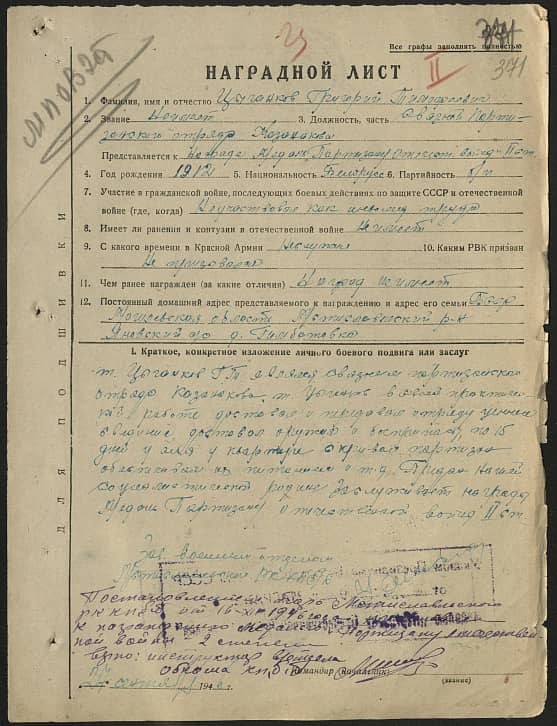 371
Все графы заполнять полностью
371
НАГРАДНОЙ ЛИСТ
II
1. Фамилия, имя и отчество Цыганков Григорий
2. Звание Неимеет 3. Должность, часть Связной Парти-
занского отряда Казанкова
Представляется к Награде Медаль Партизану Отечест войны II ст.
4. Год рождения 1912 5. Национальность Белорус 6. Партийность б/п
7. Участие в гражданской войне, последующих боевых действиях по защите СССР и отечественной
войне (где, когда) Неучаствовал как инвалид труда
8. Имеет ли ранения и контузии в отечественной войне Неимеет
9. С какого времени в Красной Армии Неслужил 10. Каким РВК призван
Не призывался
11. Чем ранее награжден (за какие отличия) Наград неимеет
12. Постоянный домашний адрес представляемого к награждению и адрес его семьи БССР
Могилевская область Мстиславский р-н
Яновский с/с д.
ДЛЯ ПОДШИВКИ
I. Краткое, конкретное изложение личного боевого подвига или заслуг
т. Цыганков Г.Т. являлся связным партизанского
отряда Казанкова. т. Цыганков в своей практичес-
кой работе доставал и передавал отряду ценные
сведения, доставал оружие и боеприпасы, по 15
дней у себя у квартире скривал партизан
обеспечивал их питанием и т.д. Предан нашей
социалистической родине заслуживает награды
Медаль Партизану отечественной войны II ст.
Зав. военным отделом
Мстиславского РК КПБ
Мстиславского
РК КПБ от 16
к награждению Медалью Партизану отечественной
войны 2 степени
Обкома КП(б)Б
Командир (начальник)
(звание)
сентября 194 г.